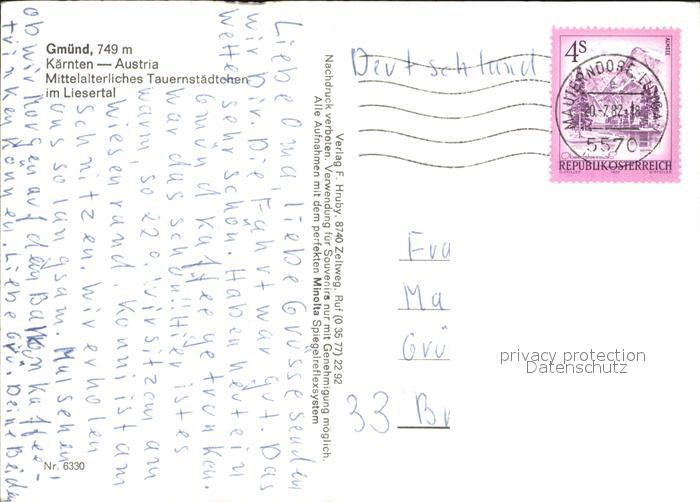 Gmünd, 749 m
Kärnten — Austria
Mittelalterliches Tauernstädtchen
im Liesertal
Liebe Oma, liebe Grüsse senden
wir dir. Die Fahrt war gut. Das
Wetter sehr schön. Haben heute in
Gmünd Kaffee getrunken.
War das schön! Hier ist es
warm, so 22°. Wir sitzen am
Wiesenrand. Konni ist am
Schnitzen. Wir erholen
uns so langsam. Mal sehen,
ob wir morgen auf dem Balkon Kaffee
trinken können. Liebe Grü. Deine Beiden
Nr. 6330
Verlag F. Hruby, 8740 Zeltweg, Ruf (0 35 77) 22 92
Nachdruck verboten. Verwendung für Souvenirs nur mit Genehmigung möglich.
Alle Aufnahmen mit dem perfekten Minolta Spiegelreflexsystem
Deutschland
4S
ALMSEE
REPUBLIK ÖSTERREICH
MAUTERNDORF
20.-7.82-18
5570
Fra
Ma
Grü
33 Br
privacy protection
Datenschutz